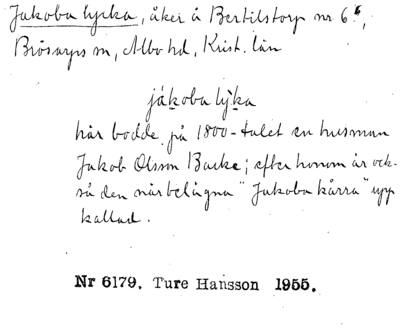 Jakoba lycka, åker å Bertilstorp nr 6⁶,
Brösarps sn, Albo hd, Krist. län
jákoba lỳka
här bodde på 1800-talet en husman
Jakob Olsson Backe; efter honom är ock-
så den närbelägna "Jakoba kärra" upp
kallad.
Nr 6179. Ture Hansson 1955.